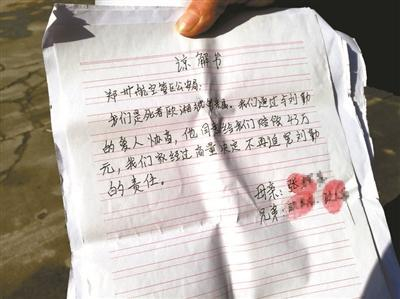 谅解书
郑州航空港区公安局:
我们是死者欧湘
家属。我们通过与刘勤
的家人协商,他同意给我们赔偿43万
元,我们家经过商量决定不再追究刘勤
的责任。
母亲:张
兄弟: